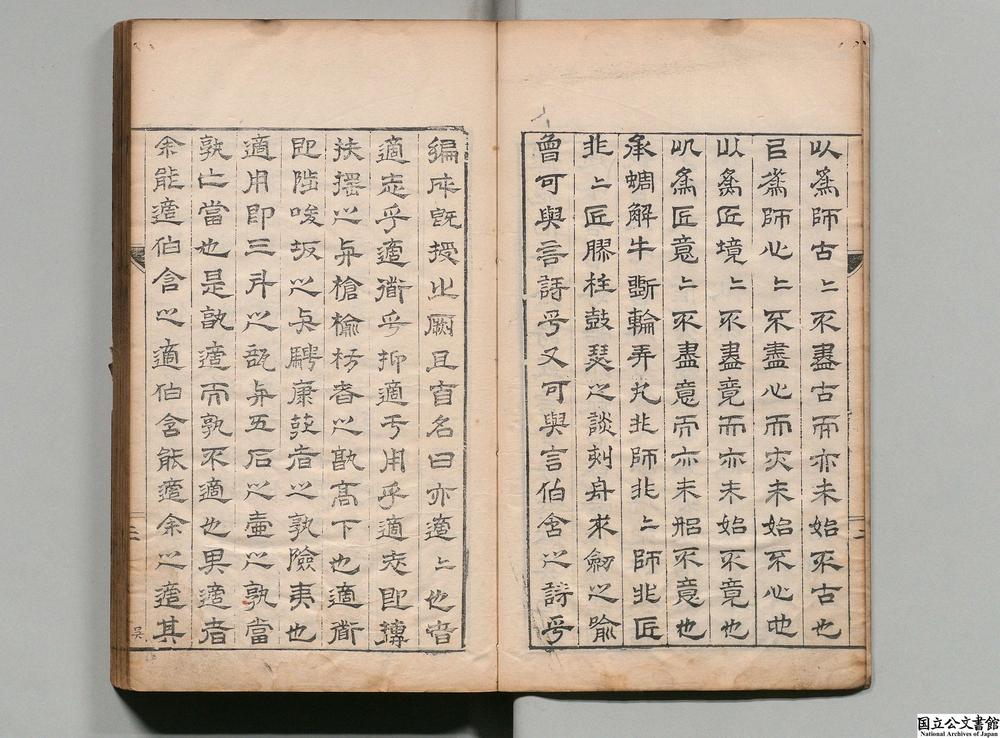 以為師古二不盡古而亦未始不古也
㠯為師心二不盡心而亦未始不心也
以為匠境二不盡竟而亦未始不竟也
以為匠意二不盡意而亦未始不意也
承蜩解牛斲輪弄丸非師非二師非匠
非二匠膠柱鼓瑟之談刻舟求劒之喻
曾可與言詩乎又可與言伯含之詩乎
編成既授之厥且有名曰亦適二也者
適志乎適衜乎抑適于用乎適志即摶
扶搖之與槍榆枋者之孰高下也適衜
即陞峻坂之與騁康莊者之孰險夷也
適用即三斗之瓿與五石之壺之孰當
孰亡當也是孰適而孰不適也果適者
余能適伯含之適伯含能適余之適其
二
三
吴
国立公文書館
National Archives of Japan